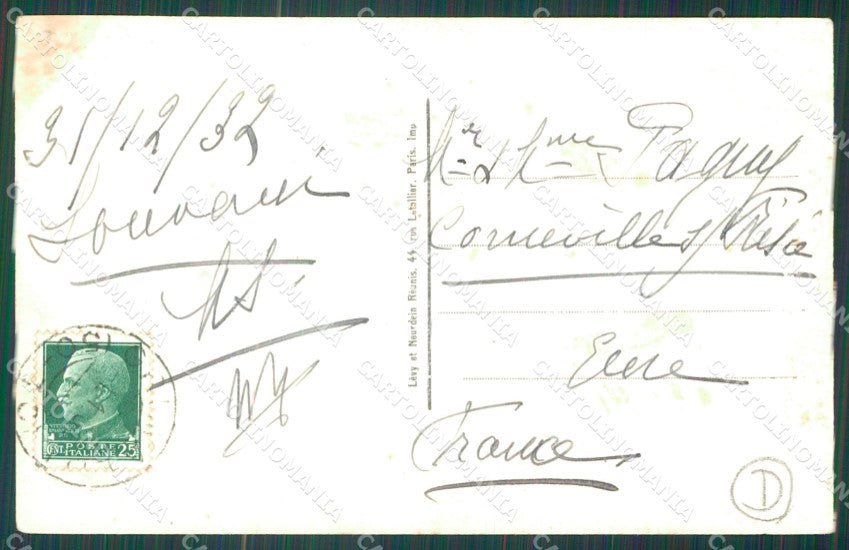 31/12/32
Souvenir
Mr & Mme Pagny
Corneville s/ Risle
Eure
France
Lévy et Neurdein Réunis, 44 rue Letellier, Paris. Imp
VITTORIO
POSTE
ITALIANE
CENT 25
D
CARTOLINOMANIA